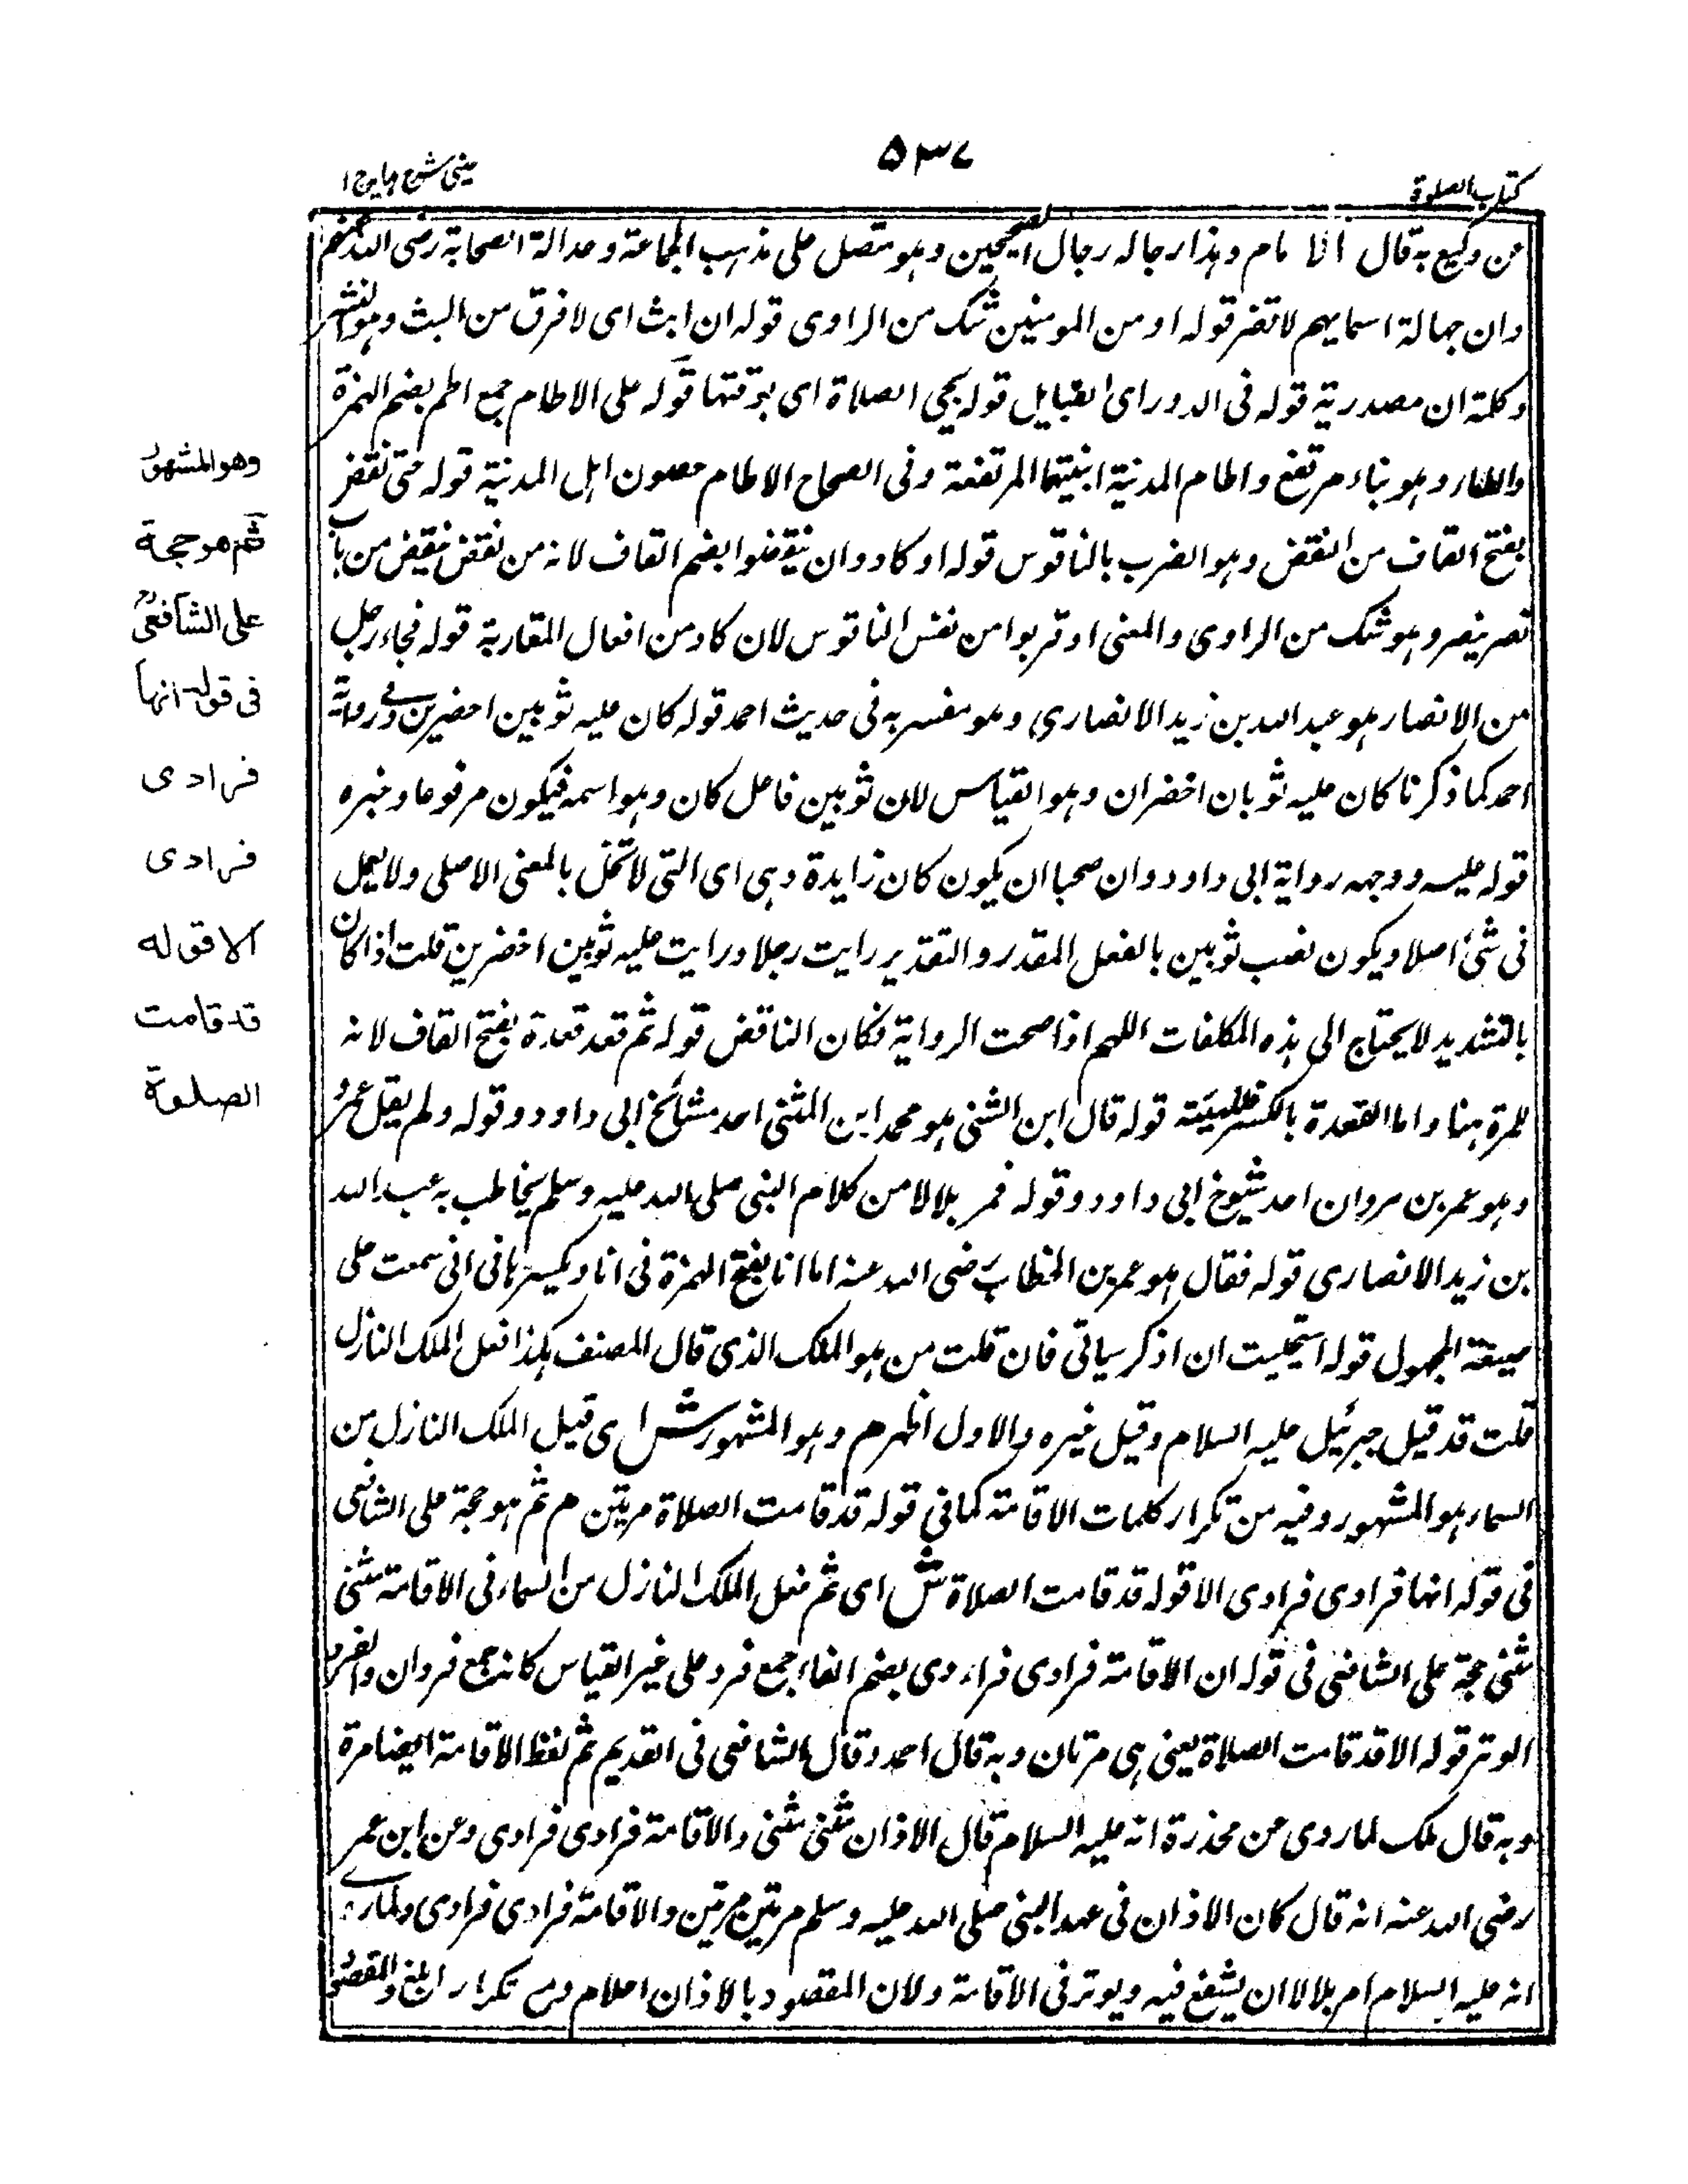 كتاب الصلوة
٥٣٧
عينى شرح هدايه ج ١
عن وكيع به قال الامام وهذا رجاله رجال الصحيحين وهو متصل على مذهب الجماعة وعدالة الصحابة رضى الله عنهم
وان جهالة اسمايهم لا تضر قوله او من المومنين شك من الراوى قوله ان ابث اى لا فرق من البث وهو النشر
وكلمة ان مصدرية قوله فى الدور اى القبايل قوله بحى الصلاة اى بوقتها قوله على الاطام جمع اطم بضم الهمزة
والطاء وهو بناء مرتفع واطام المدينة ابنيتها المرتفعة وفى الصحاح الاطام حصون اهل المدينة قوله حتى نقض
بفتح القاف من النقض وهو الضرب بالناقوس قوله او كادوا ان ينقضوا بضم القاف لانه من نقض ينقض من باب
نصر ينصر وهو شك من الراوى والمعنى او قربوا من نفس الناقوس لان كاد من افعال المقاربة قوله فجاء رجل
من الانصار هو عبد الله بن زيد الانصارى وهو مفسر به فى حديث احمد قوله كان عليه ثوبين اخضرين وفى رواية
احمد كما ذكرنا كان عليه ثوبان اخضران وهو القياس لان ثوبين فاعل كان وهو اسمه فيكون مرفوعا وخبره
قوله عليه ووجهه رواية ابى داود وان صحبا ان يكون كان زايدة وهى اى التى لا تخل بالمعنى الاصلى ولا يعمل
فى شئ اصلا ويكون نصب ثوبين بالفعل المقدر والتقدير رايت رجلا ورايت عليه ثوبين اخضرين قلت اذا كان
بالتشديد لا يحتاج الى هذه المكلفات اللهم اذا صحت الرواية فكان الناقض قوله ثم قعد قعدة بفتح القاف لانه
للمرة هنا واما القعدة بالكسر فللهيئة قوله قال ابن المثنى هو محمد ابن المثنى احد مشائخ ابى داود وقوله ولم يقل عمرو
وهو عمر بن مروان احد شيوخ ابى داود وقوله فمر بلالا من كلام النبى صلى الله عليه وسلم يخاطب به عبد الله
بن زيد الانصارى قوله فقال هو عمر بن الخطاب رضى الله عنه اما انا بفتح الهمزة فى انا وبكسرها فى انى سمعت على
صيغة المجهول قوله استحييت ان اذكر سياتى فان قلت من هو الملك الذى قال المصنف هكذا فعل الملك النازل
قلت قد قيل جبرئيل عليه السلام وقيل غيره والاول اظهر م وهو المشهور ش اى قيل الملك النازل من
السماء هو المشهور وفيه من تكرار كلمات الاقامة كما فى قوله قد قامت الصلاة مرتين م ثم هو حجة على الشافعى
فى قوله انها فرادى فرادى الا قوله قد قامت الصلاة ش اى ثم فعل الملك النازل من السماء فى الاقامة مثنى
مثنى حجة على الشافعى فى قوله ان الاقامة فرادى فراءدى بضم الفاء جمع فرد على غير القياس كانه جمع فردان والفرد
الوتر قوله الا قد قامت الصلاة يعنى هى مرتان وبه قال احمد وقال الشافعى فى القديم ثم لفظ الاقامة ايضا مرة
وبه قال ملك لما روى عن محذرة انه عليه السلام قال الاذان مثنى مثنى والاقامة فرادى فرادى وعن ابن عمر
رضى الله عنه انه قال كان الاذان فى عهد النبى صلى الله عليه وسلم مرتين مرتين والاقامة فرادى فرادى ولما روى
انه عليه السلام امر بلالا ان يشفع فيه ويوتر فى الاقامة ولان المقصود بالاذان اعلام تكرار ابلغ والمقصود
وهو المشهور
ثم هو حجة
على الشافعى رح
فى قوله انها
فرادى
فرادى
الا قوله
قد قامت
الصلوة